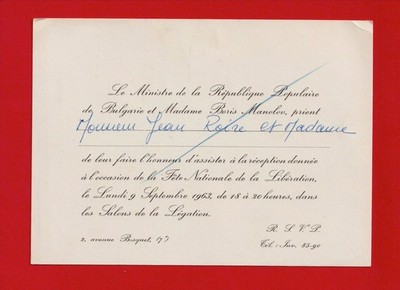 Le Ministre de la République Populaire
de Bulgarie et Madame Boris Manolov, prient
Monsieur Jean Roire et Madame
de leur faire l'honneur d'assister à la réception donnée
à l'occasion de la Fête Nationale de la Libération,
le Lundi 9 Septembre 1963, de 18 à 20 heures, dans
les Salons de la Légation.
R. S. V. P.
2, avenue Bosquet, (7e)
Tél. : Inv. 85-90